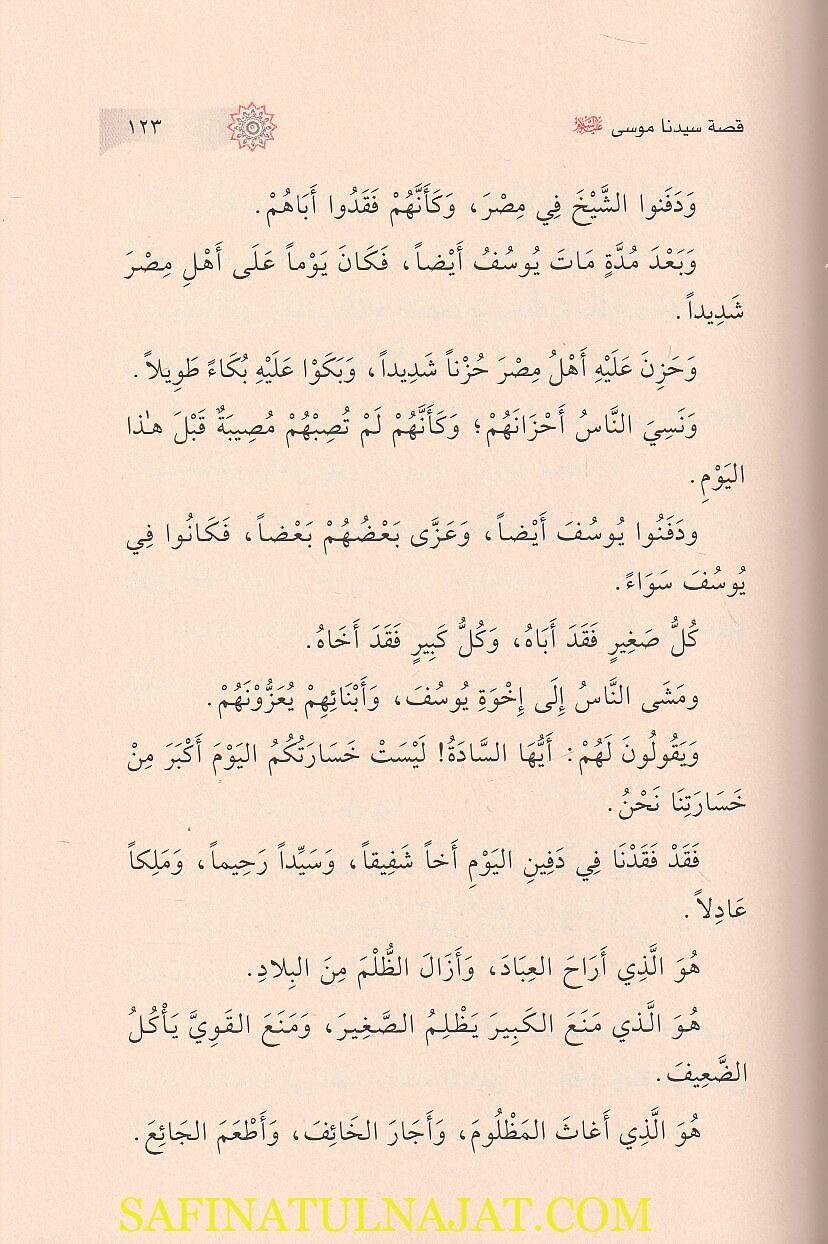 قصة سيدنا موسى عليه السلام
١٢٣
وَدَفَنوا الشَّيْخَ فِي مِصْرَ، وَكَأَنَّهُمْ فَقَدُوا أَبَاهُمْ.
وَبَعْدَ مُدَّةٍ مَاتَ يُوسُفُ أَيْضاً، فَكَانَ يَوْماً عَلَى أَهْلِ مِصْرَ
شَدِيداً.
وَحَزِنَ عَلَيْهِ أَهْلُ مِصْرَ حُزْناً شَدِيداً، وَبَكَوْا عَلَيْهِ بُكَاءً طَوِيلاً.
وَنَسِيَ النَّاسُ أَحْزَانَهُمْ؛ وَكَأَنَّهُمْ لَمْ تُصِبْهُمْ مُصِيبَةٌ قَبْلَ هٰذا
اليَوْمِ.
ودَفَنُوا يُوسُفَ أَيْضاً، وَعَزَّى بَعْضُهُمْ بَعْضاً، فَكَانُوا فِي
يُوسُفَ سَوَاءً.
كُلُّ صَغِيرٍ فَقَدَ أَبَاهُ، وَكُلُّ كَبِيرٍ فَقَدَ أَخَاهُ.
ومَشَى النَّاسُ إِلَى إِخْوَةِ يُوسُفَ، وَأَبْنَائِهِمْ يُعَزُّوْنَهُمْ.
وَيَقُولُونَ لَهُمْ: أَيُّهَا السَّادَةُ! لَيْسَتْ خَسَارَتُكُمُ اليَوْمَ أَكْبَرَ مِنْ
خَسَارَتِنَا نَحْنُ.
فَقَدْ فَقَدْنَا فِي دَفِينِ اليَوْمِ أَخاً شَفِيقاً، وَسَيِّداً رَحِيماً، وَمَلِكاً
عَادِلاً.
هُوَ الَّذِي أَرَاحَ العِبَادَ، وَأَزَالَ الظُّلْمَ مِنَ البِلادِ.
هُوَ الَّذي مَنَعَ الكَبِيرَ يَظْلِمُ الصَّغِيرَ، وَمَنَعَ القَوِيَّ يَأْكُلُ
الضَّعِيفَ.
هُوَ الَّذِي أَغاثَ المَظْلُومَ، وَأَجَارَ الخَائِفَ، وَأَطْعَمَ الجَائِعَ.
SAFINATULNAJAT.COM